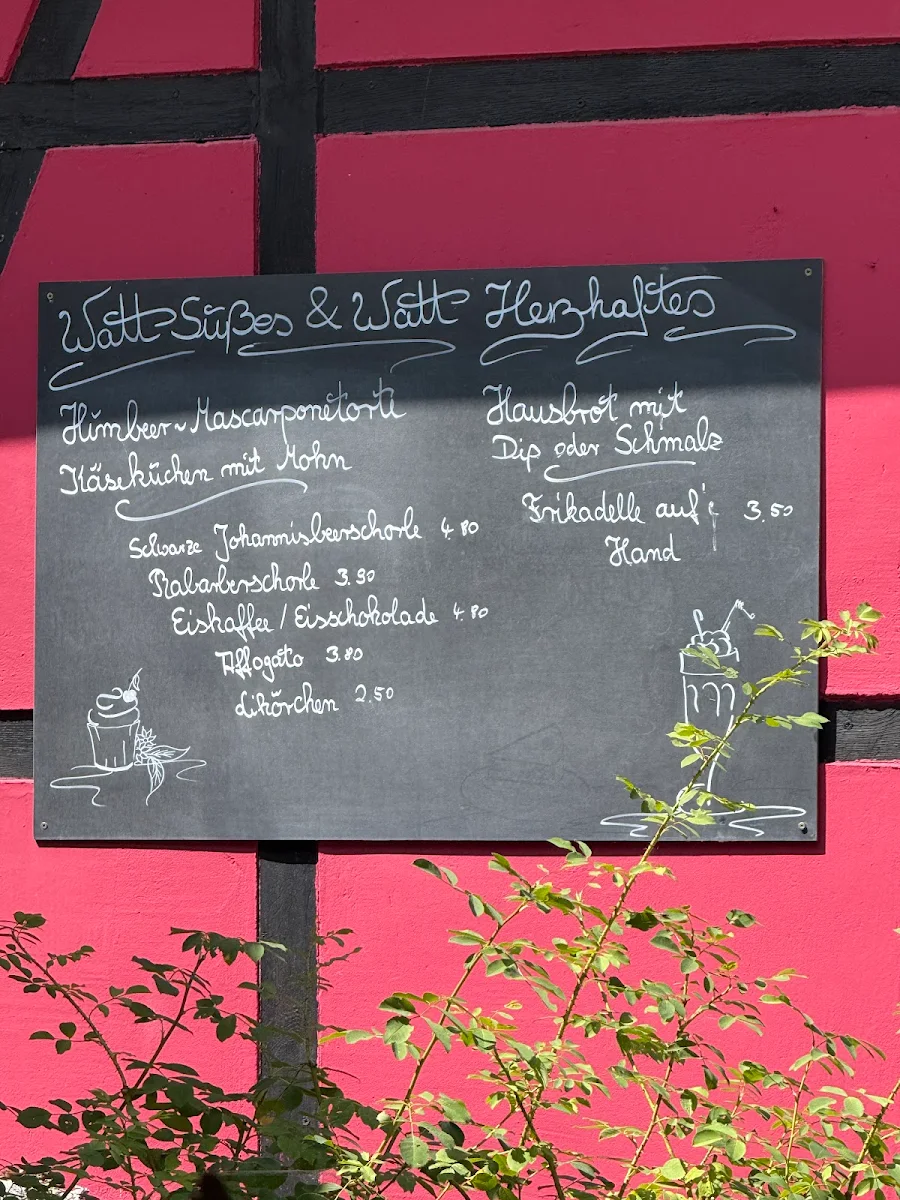 Watt Süßes & Watt Herzhaftes
Himbeer-Mascarponetorte
Käseküchen mit Mohn
Schwarze Johannisbeerschorle 4.80
Rabarberschorle 3.90
Eiskaffee / Eisschokolade 4.80
Affogato 3.80
Likörchen 2.50
Hausbrot mit
Dip oder Schmalz
Frikadelle auf's 3.50
Hand